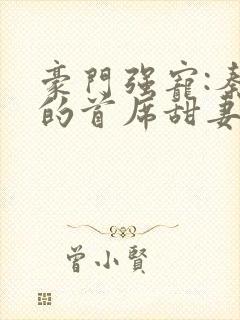 豪門强寵:秦
的首席甜妻
曾小賢